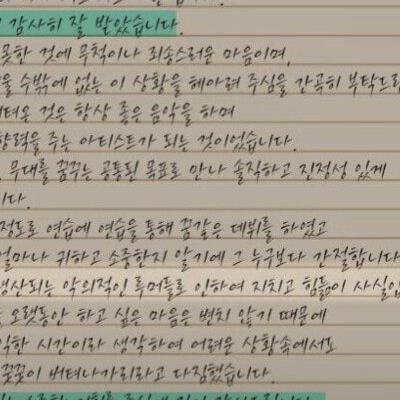 감사히 잘 받았습니다.
못한 것에 무척이나 죄송스러운 마음이며,
수밖에 없는 이 상황을 헤아려 주심을 간곡히 부탁드립
것은 항상 좋은 음악을 하며
향력을 주는 아티스트가 되는 것이었습니다.
무대를 꿈꾸는 공통된 목표로 만나 솔직하고 진정성 있게
니다.
정도로 연습에 연습을 통해 꿈같은 데뷔를 하였고
얼마나 귀하고 소중한지 알기에 그 누구보다 간절합니다
생산되는 악의적인 루머들로 인하여 지치고 힘듦이 사실입
오랫동안 하고 싶은 마음은 변치 않기 때문에
시간이라 생각하여 어려운 상황속에서도
꿋꿋이 버텨나가리라고 다짐했습니다.